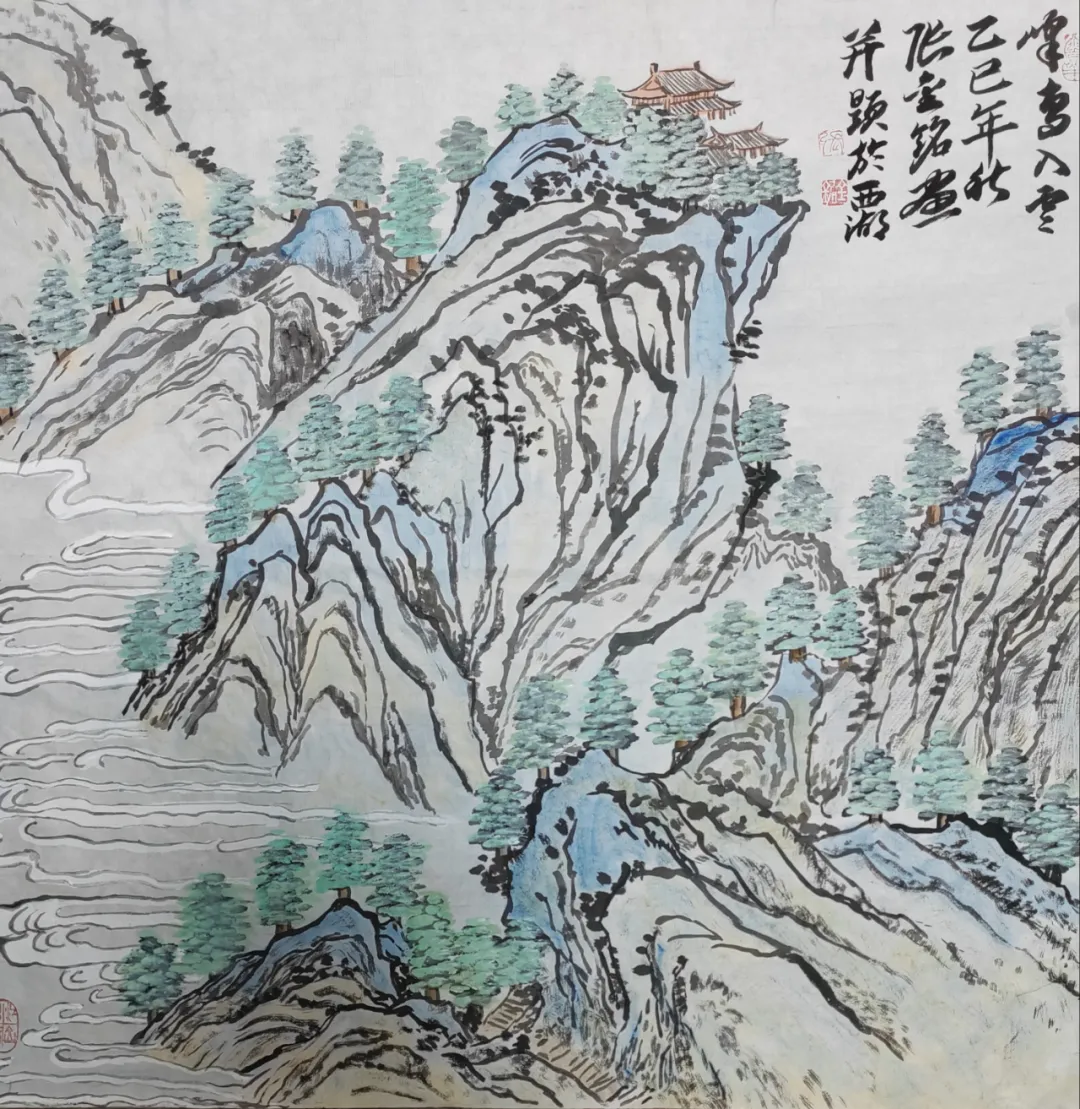 峰高入云
乙巳年秋
张金铭画
并题於西湖